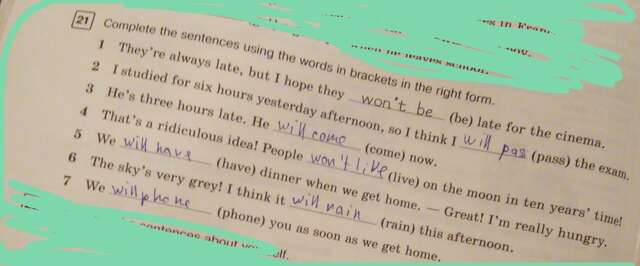 21 Complete the sentences using the words in brackets in the right form.
1 They're always late, but I hope they won't be (be) late for the cinema.
2 I studied for six hours yesterday afternoon, so I think I will pas (pass) the exam.
3 He's three hours late. He will come (come) now.
4 That's a ridiculous idea! People won't live (live) on the moon in ten years' time!
5 We will have (have) dinner when we get home. — Great! I'm really hungry.
6 The sky's very grey! I think it will rain (rain) this afternoon.
7 We will phone (phone) you as soon as we get home.
sentences about